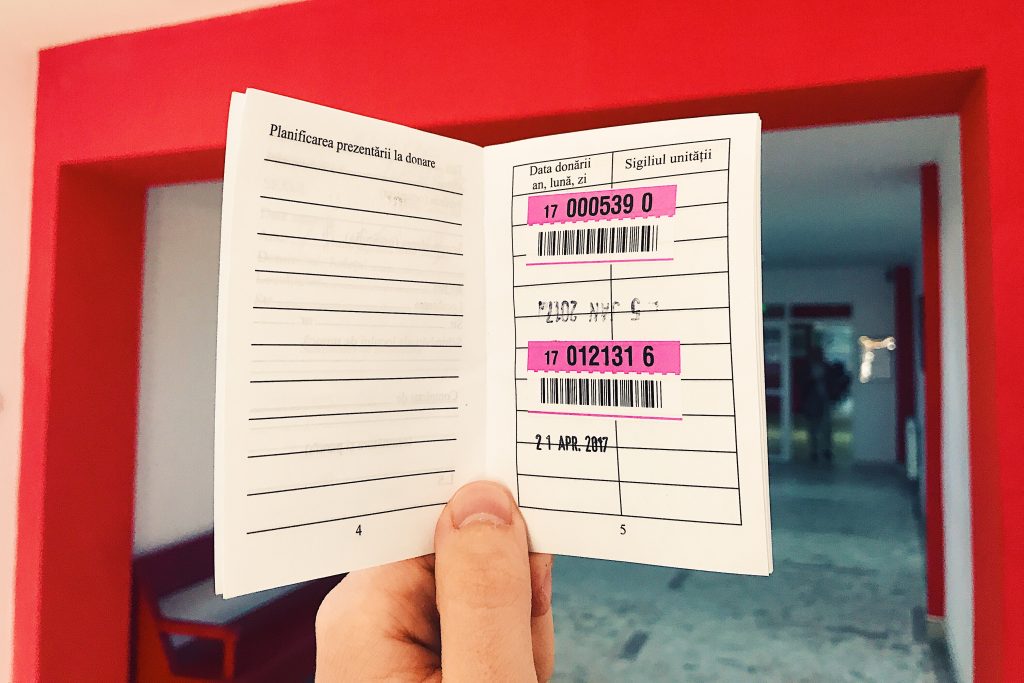 Planificarea prezentării la donare
4
Data donării
an, lună, zi
Sigiliul unității
17 000539 0
5 JAN 2017
17 012131 6
21 APR. 2017
5